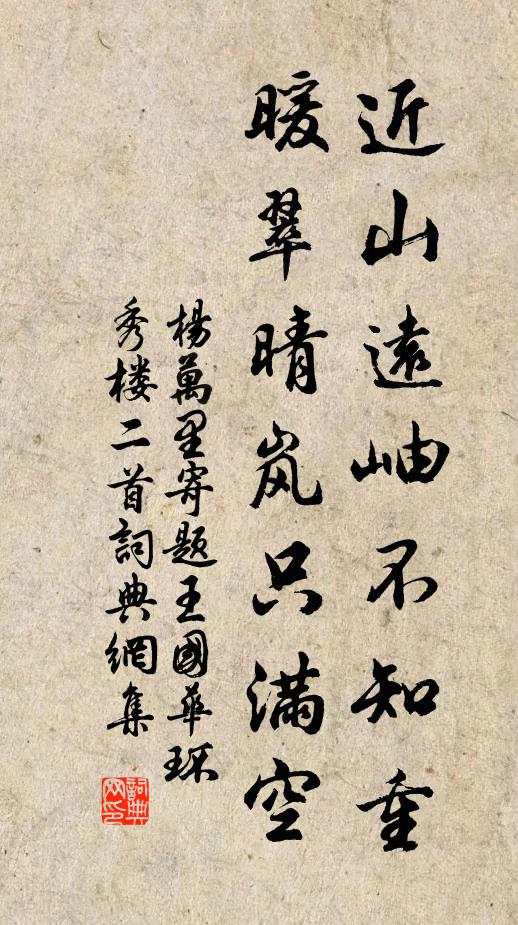 近山遠岫不知重
暖翠晴岚只满空
楊萬里寄題王國華环
秀楼二首詞典網集
詞典
网印